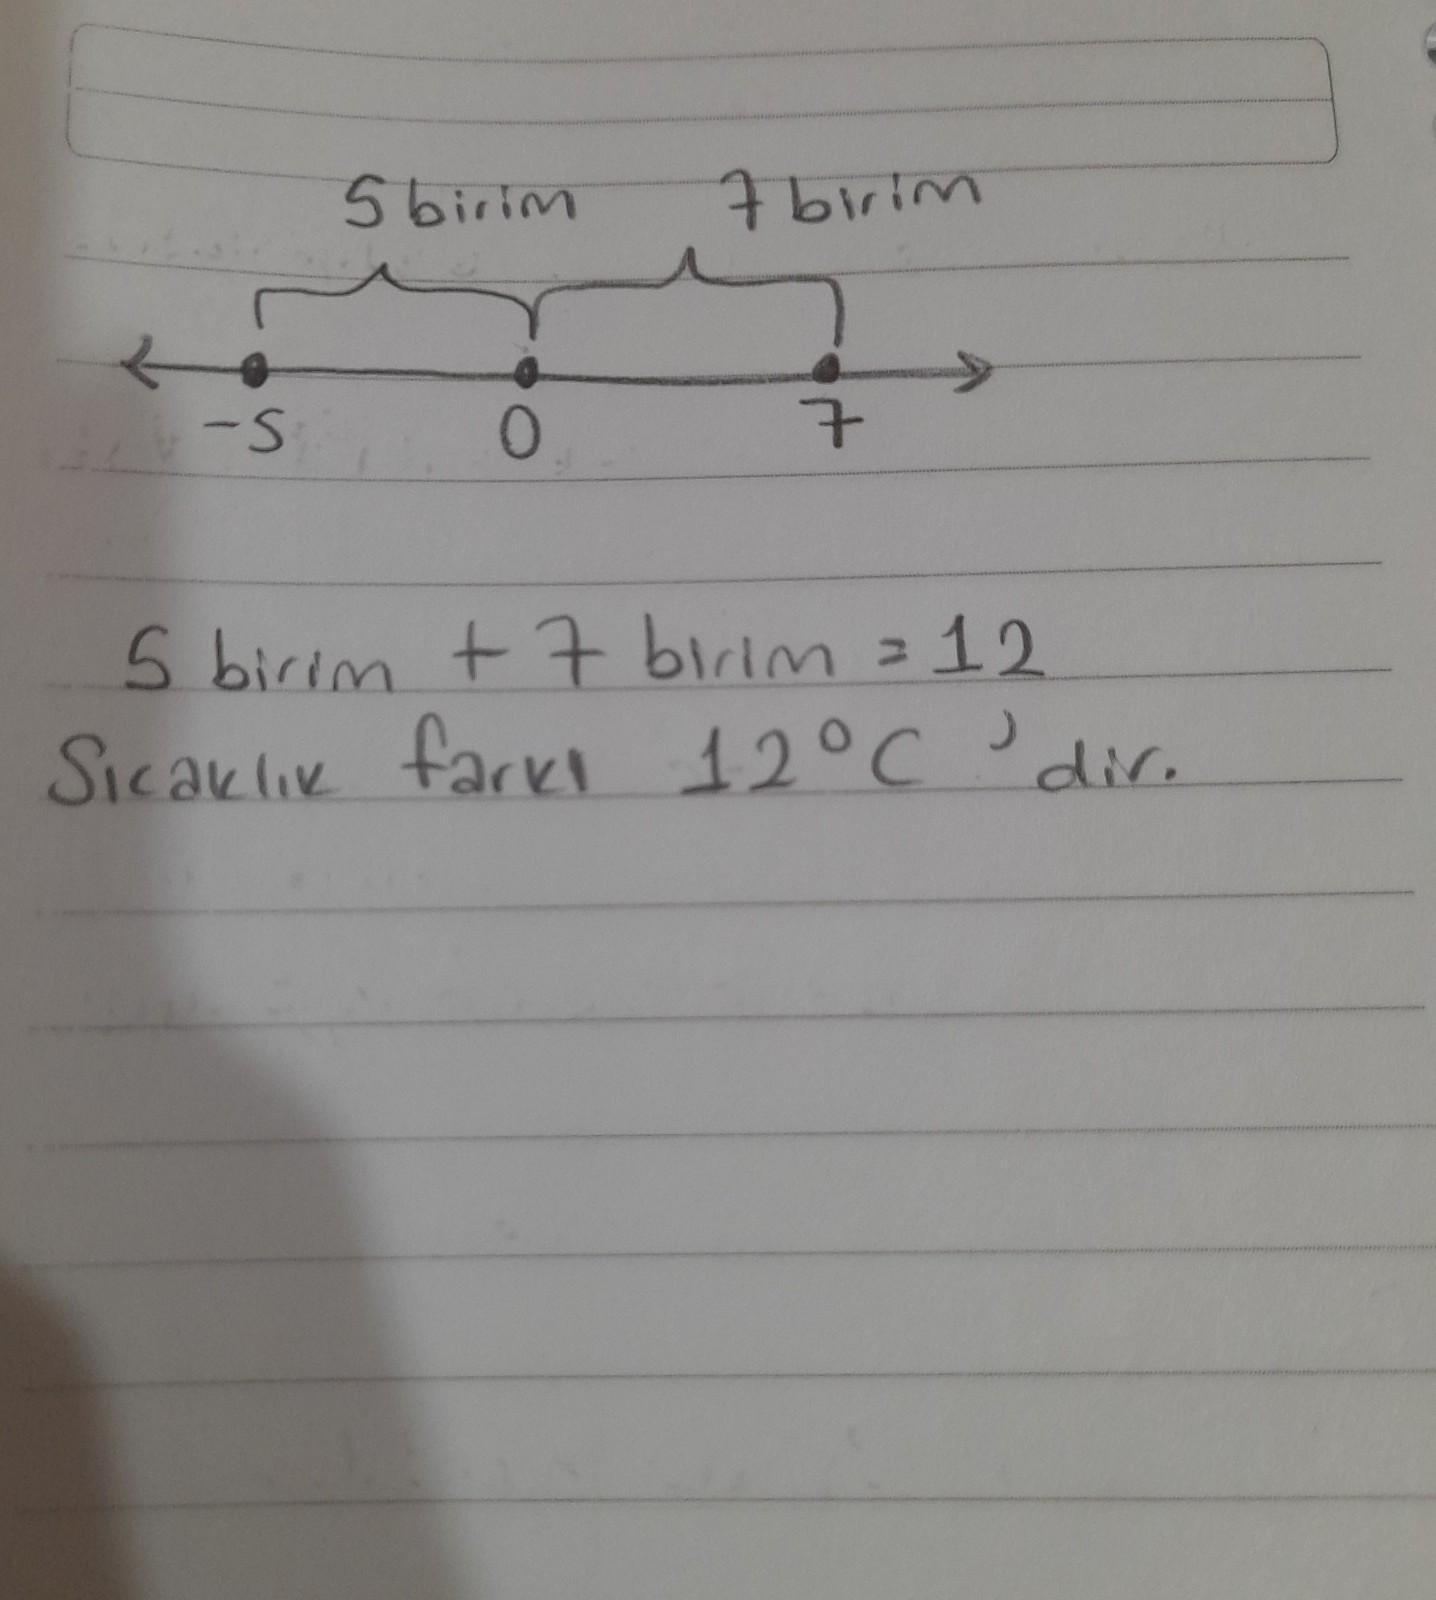 5 birim 7 birim
-5 0 7
5 birim + 7 birim = 12
Sıcaklık farkı 12°C 'dir.